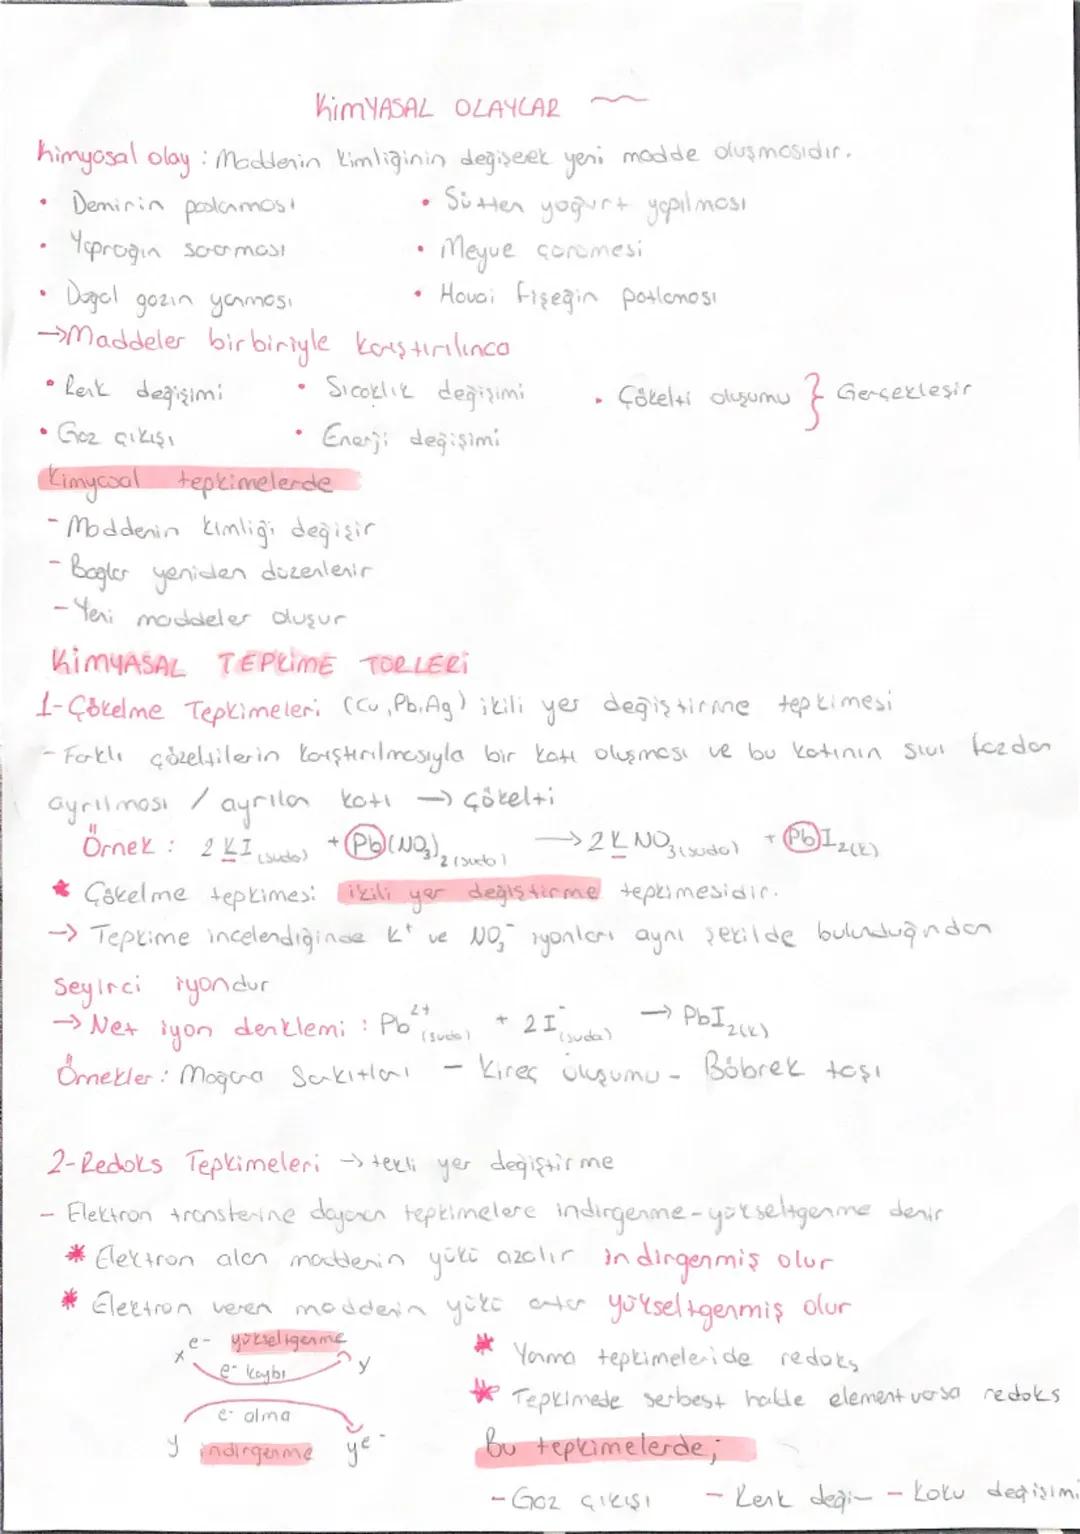 KİMYASAL OLAYLAR
Kimyasal olay : Maddenin kimliğinin değişerek yeni madde oluşmasıdır.
• Demirin paslanması • Sütten yoğurt yapılması
• Yaprağın sararması • Meyve çürümesi
• Doğal gazın yanması • Havai fişeğin patlaması
→Maddeler birbiriyle karıştırılınca
• Renk değişimi • Sıcaklık değişimi • Çökelti oluşumu } Gerçekleşir
• Gaz çıkışı • Enerji değişimi
Kimyasal tepkimelerde
- Maddenin kimliği değişir
- Bağlar yeniden düzenlenir
- Yeni maddeler oluşur
KİMYASAL TEPKİME TÜRLERİ
1-Çökelme Tepkimeleri (Cu, Pb, Ag) ikili yer değiştirme tepkimesi
- Farklı çözeltilerin karıştırılmasıyla bir katı oluşması ve bu katının sıvı fazdan
ayrılması / ayrılan katı → çökelti
Örnek : 2 KI(suda) + Pb(NO3)2(suda) → 2 KNO3(suda) + PbI2(k)
* Çökelme tepkimesi ikili yer değiştirme tepkimesidir.
→ Tepkime incelendiğinde K+ ve NO3- iyonları aynı şekilde bulunduğundan
seyirci iyondur
→ Net iyon denklemi : Pb2+(suda) + 2I-(suda) → PbI2(k)
Örnekler : Mağara Sarkıtları - Kireç oluşumu - Böbrek taşı
2-Redoks Tepkimeleri → tekli yer değiştirme
- Elektron transferine dayanan tepkimelere indirgenme-yükseltgenme denir
* Elektron alan maddenin yükü azalır indirgenmiş olur
* Elektron veren maddenin yükü artar yükseltgenmiş olur
x e- yükseltgenme y
e- kaybı
e- alma
y indirgenme ye-
* Yanma tepkimeleride redoks
* Tepkimede serbest halde element varsa redoks
Bu tepkimelerde;
- Gaz çıkışı - Renk deği- - Koku değişimi